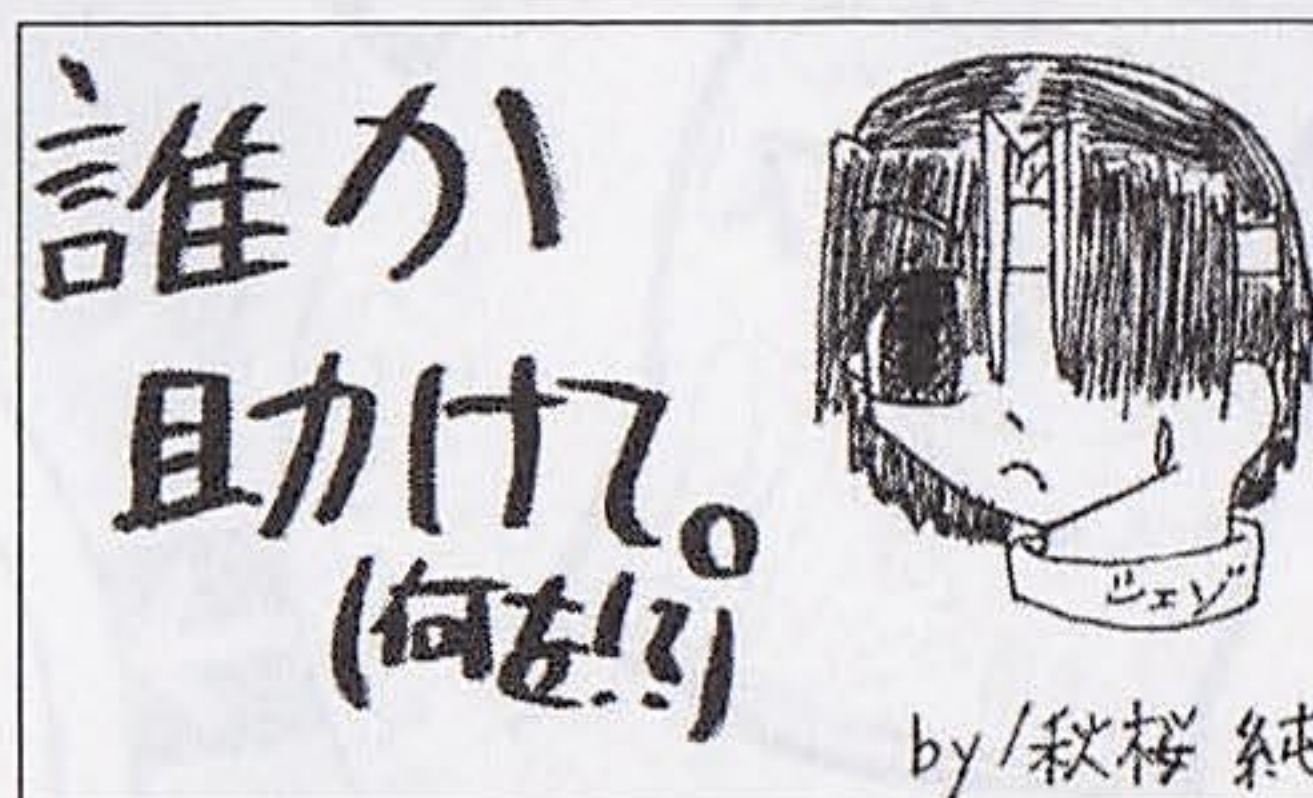 誰か
助けて。
(何を!?)
シェゾ
by/秋桜 純